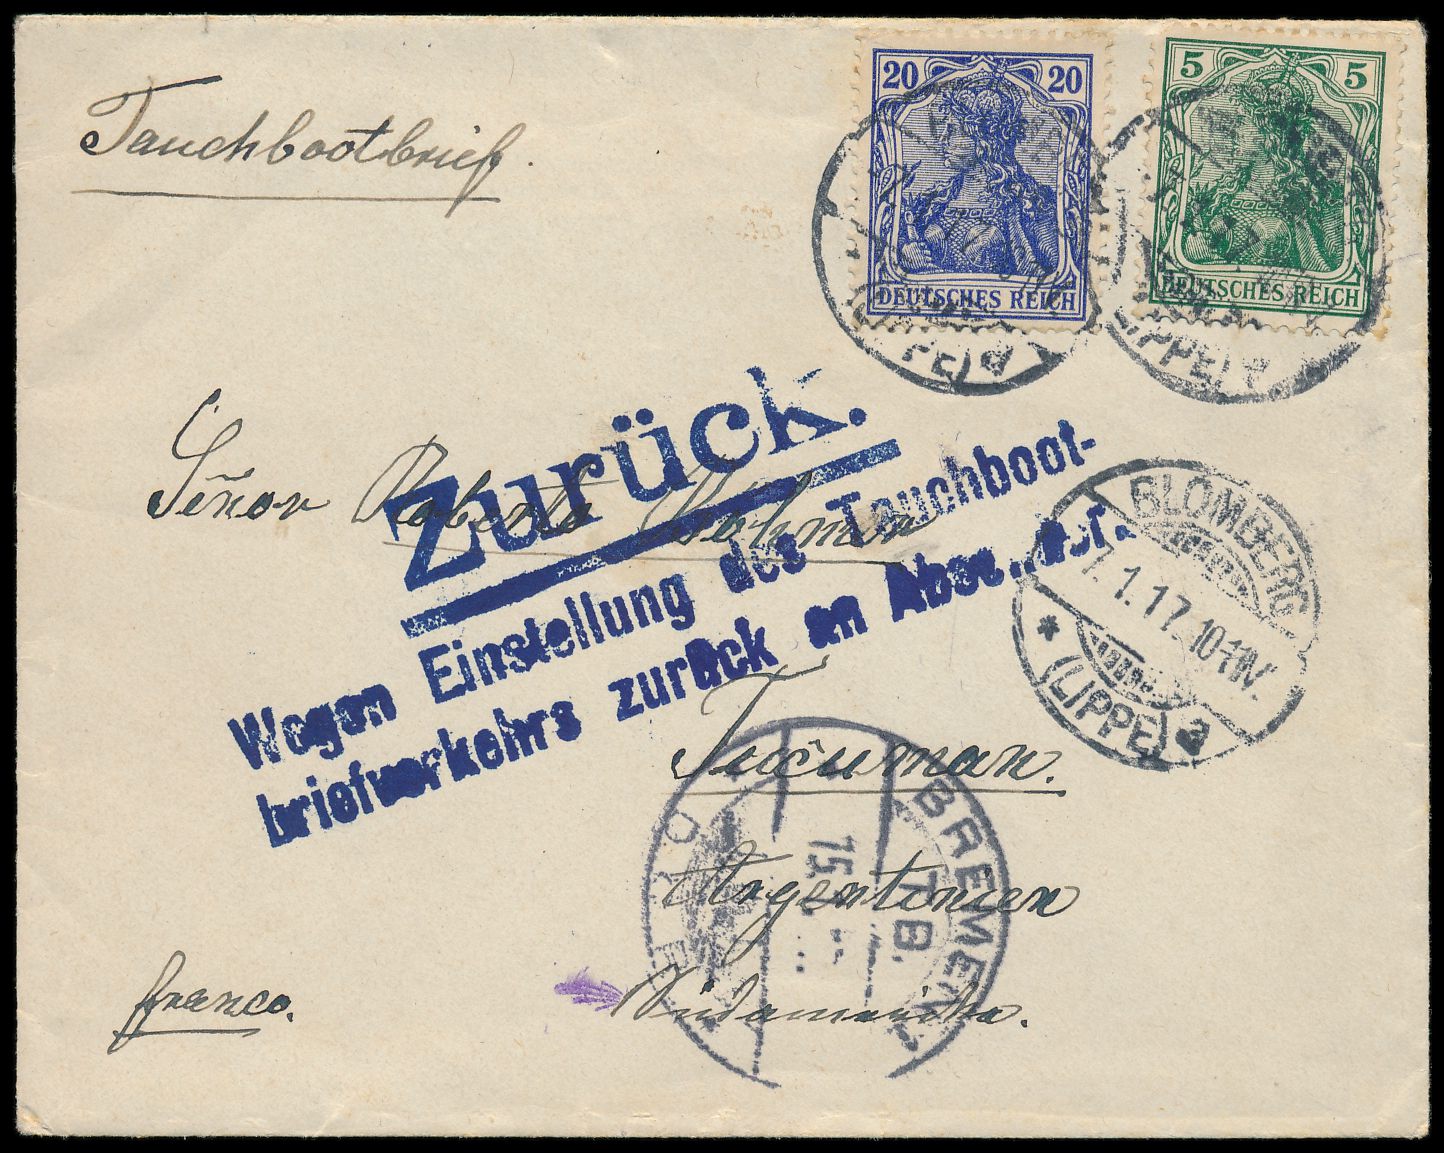 Tauchbootbrief.
20 20
DEUTSCHES REICH
5 5
DEUTSCHES REICH
(LIPPE) a
(LIPPE) a
Zurück.
Señor Roberto
Wegen Einstellung des Tauchboot-
briefverkehrs zurück an
BLOMBERG
7.1.17. 10-11V.
* (LIPPE) a
Tucuman.
BREMEN
15.
7B.
Argentinien
franco.
Südamerika.